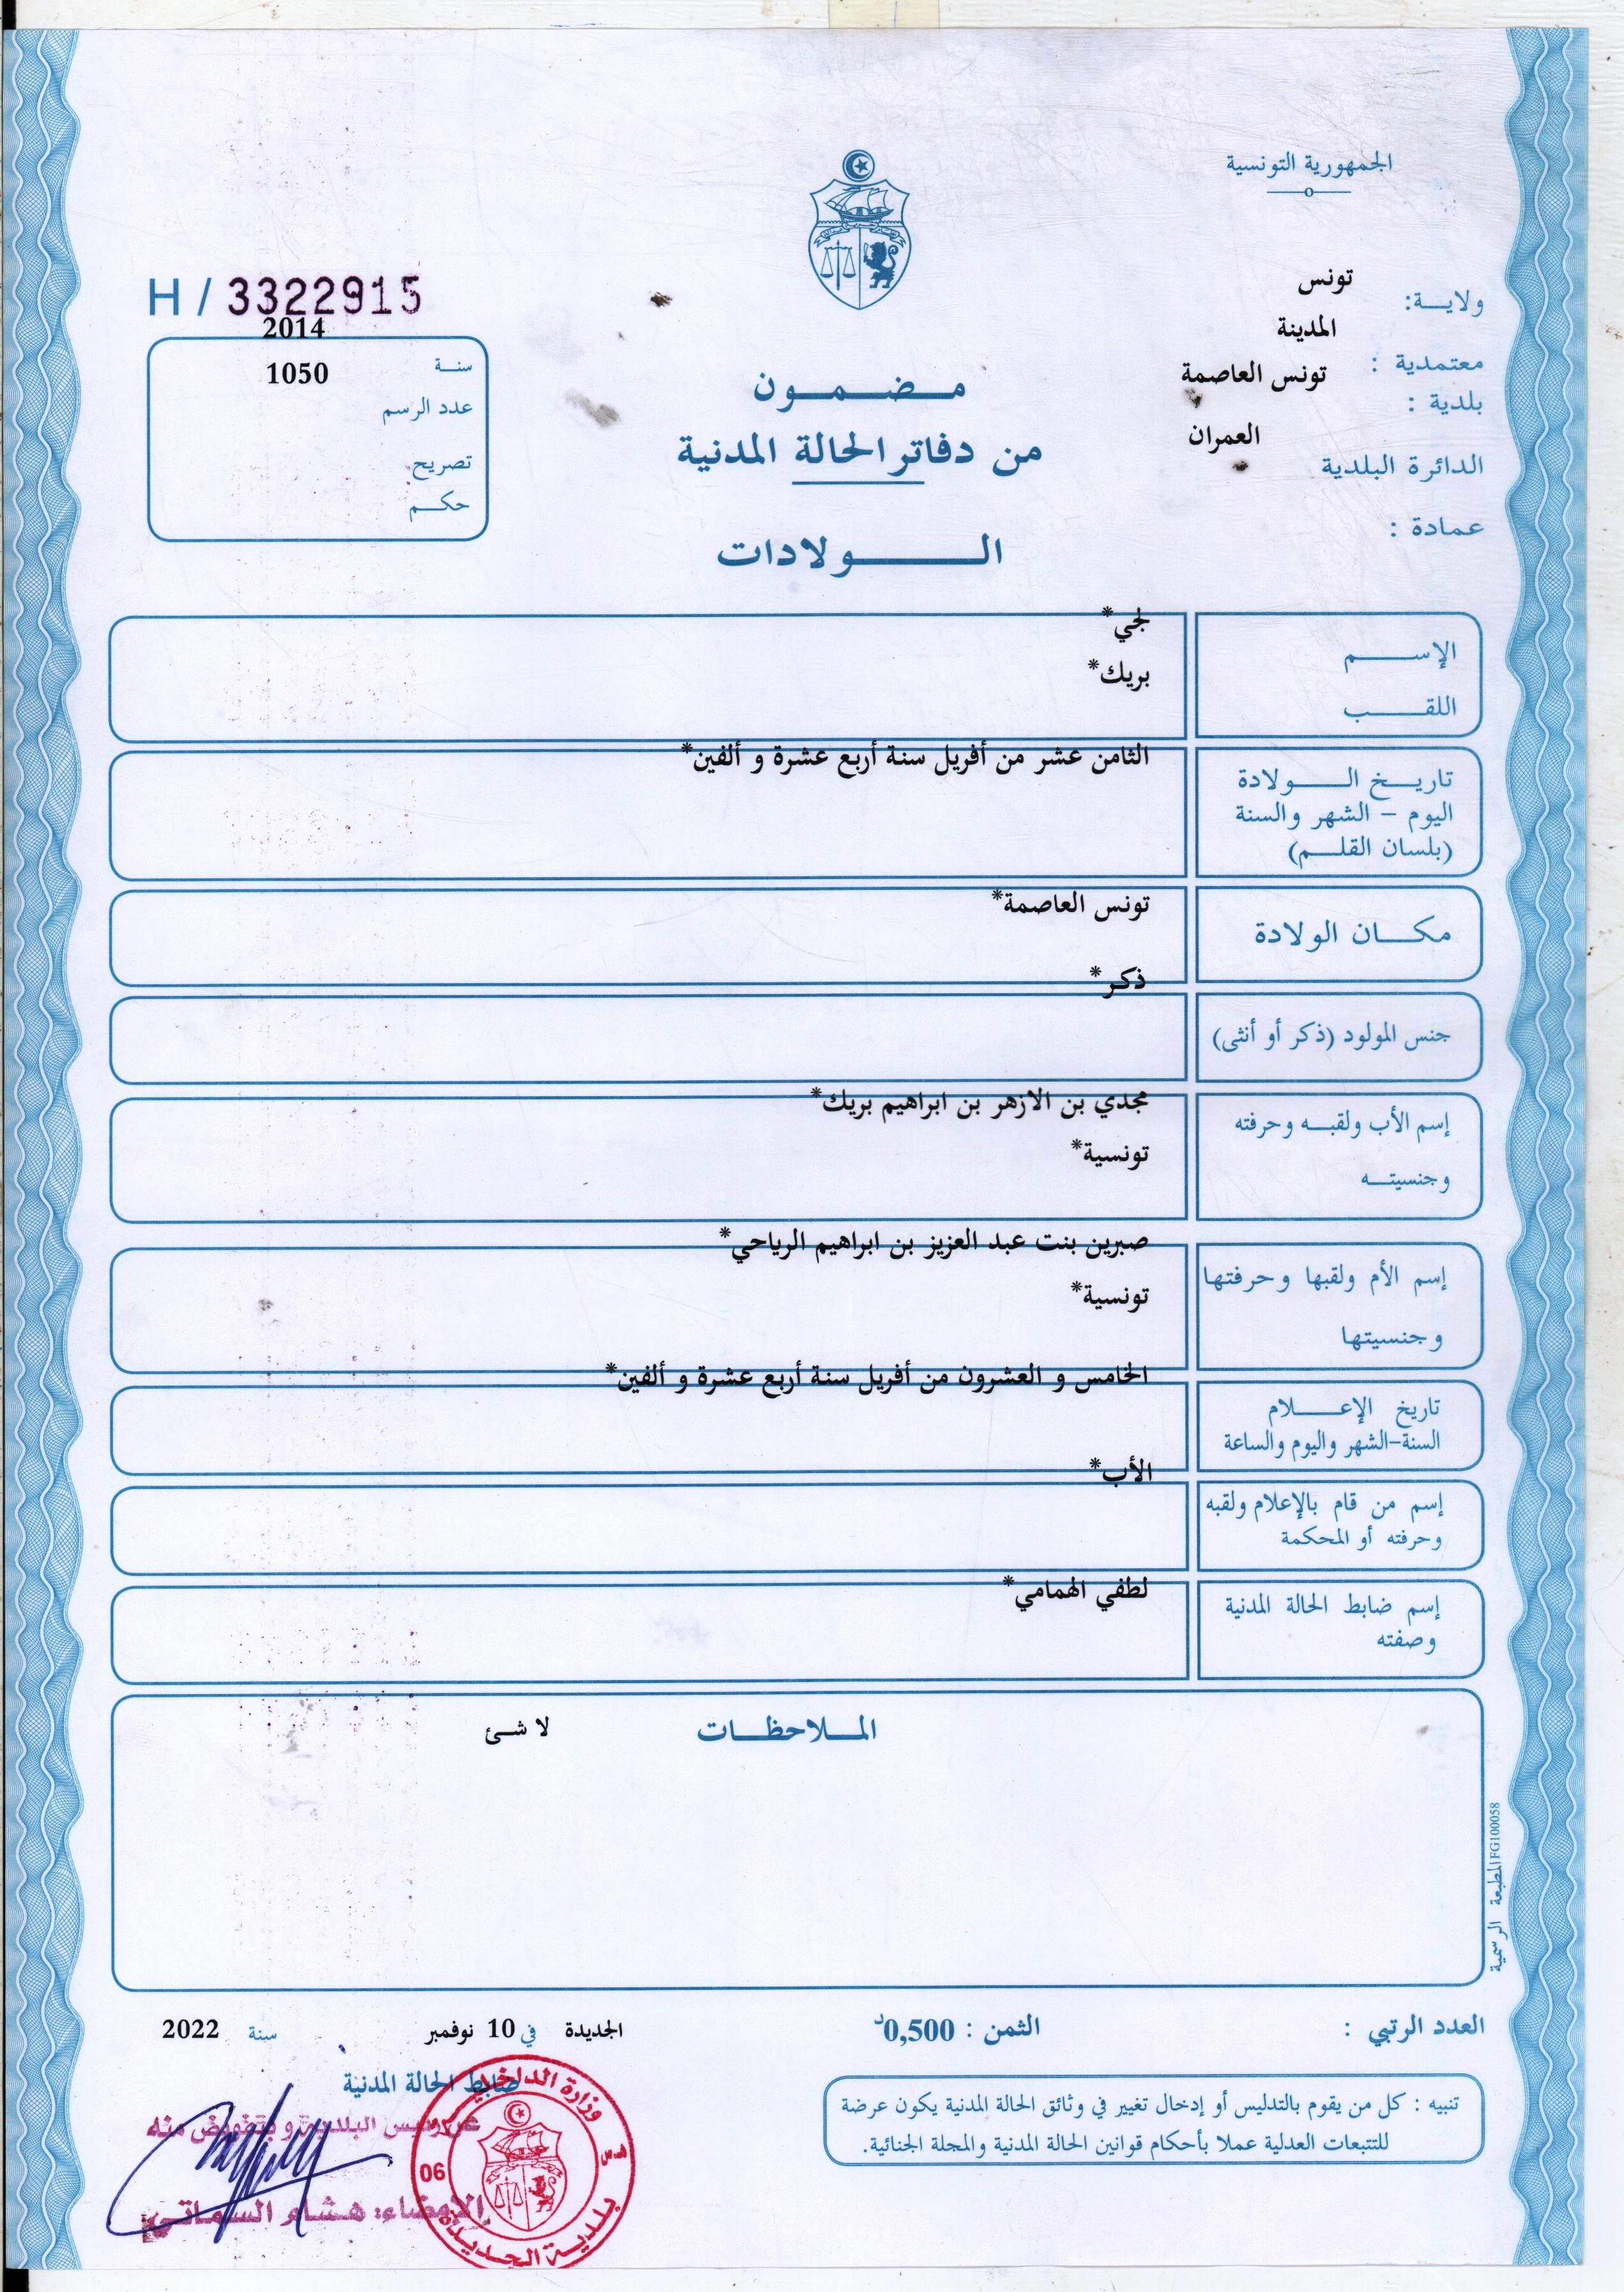 الجمهورية التونسية
ولايـــة: تونس
معتمدية : المدينة
بلدية : تونس العاصمة
الدائرة البلدية العمران
عمادة :
H / 3322915
سنـة 2014
عدد الرسم 1050
تصريح
حكـم
مـضـمـون
من دفاتر الحالة المدنية
الـولادات
الإسـم لجي*
اللقـب بريك*
تاريـخ الـولادة
اليوم – الشهر والسنة
(بلسان القلـم)
الثامن عشر من أفريل سنة أربع عشرة و ألفين*
مكـان الولادة تونس العاصمة*
جنس المولود (ذكر أو أنثى) ذكر*
إسم الأب ولقبـه وحرفته مجدي بن الازهر بن ابراهيم بريك*
وجنسيتـه تونسية*
إسم الأم ولقبها وحرفتها صبرين بنت عبد العزيز بن ابراهيم الرياحي*
وجنسيتها تونسية*
تاريخ الإعـلام
السنة-الشهر واليوم والساعة
الخامس و العشرون من أفريل سنة أربع عشرة و ألفين*
إسم من قام بالإعلام ولقبه
وحرفته أو المحكمة
الأب*
إسم ضابط الحالة المدنية
وصفته
لطفي الهمامي*
المـلاحظـات لا شئ
المطبعة الرسمية FG100058
العدد الرتبي :
الثمن : 0,500د
الجديدة في 10 نوفمبر سنة 2022
تنبيه : كل من يقوم بالتدليس أو إدخال تغيير في وثائق الحالة المدنية يكون عرضة
للتتبعات العدلية عملا بأحكام قوانين الحالة المدنية والمجلة الجنائية.
ضابط الحالة المدنية
عن رئيس البلدية و بتفويض منه
الإمضاء: هشام السماتي
وزارة الداخلية
06
بلدية الجديدة